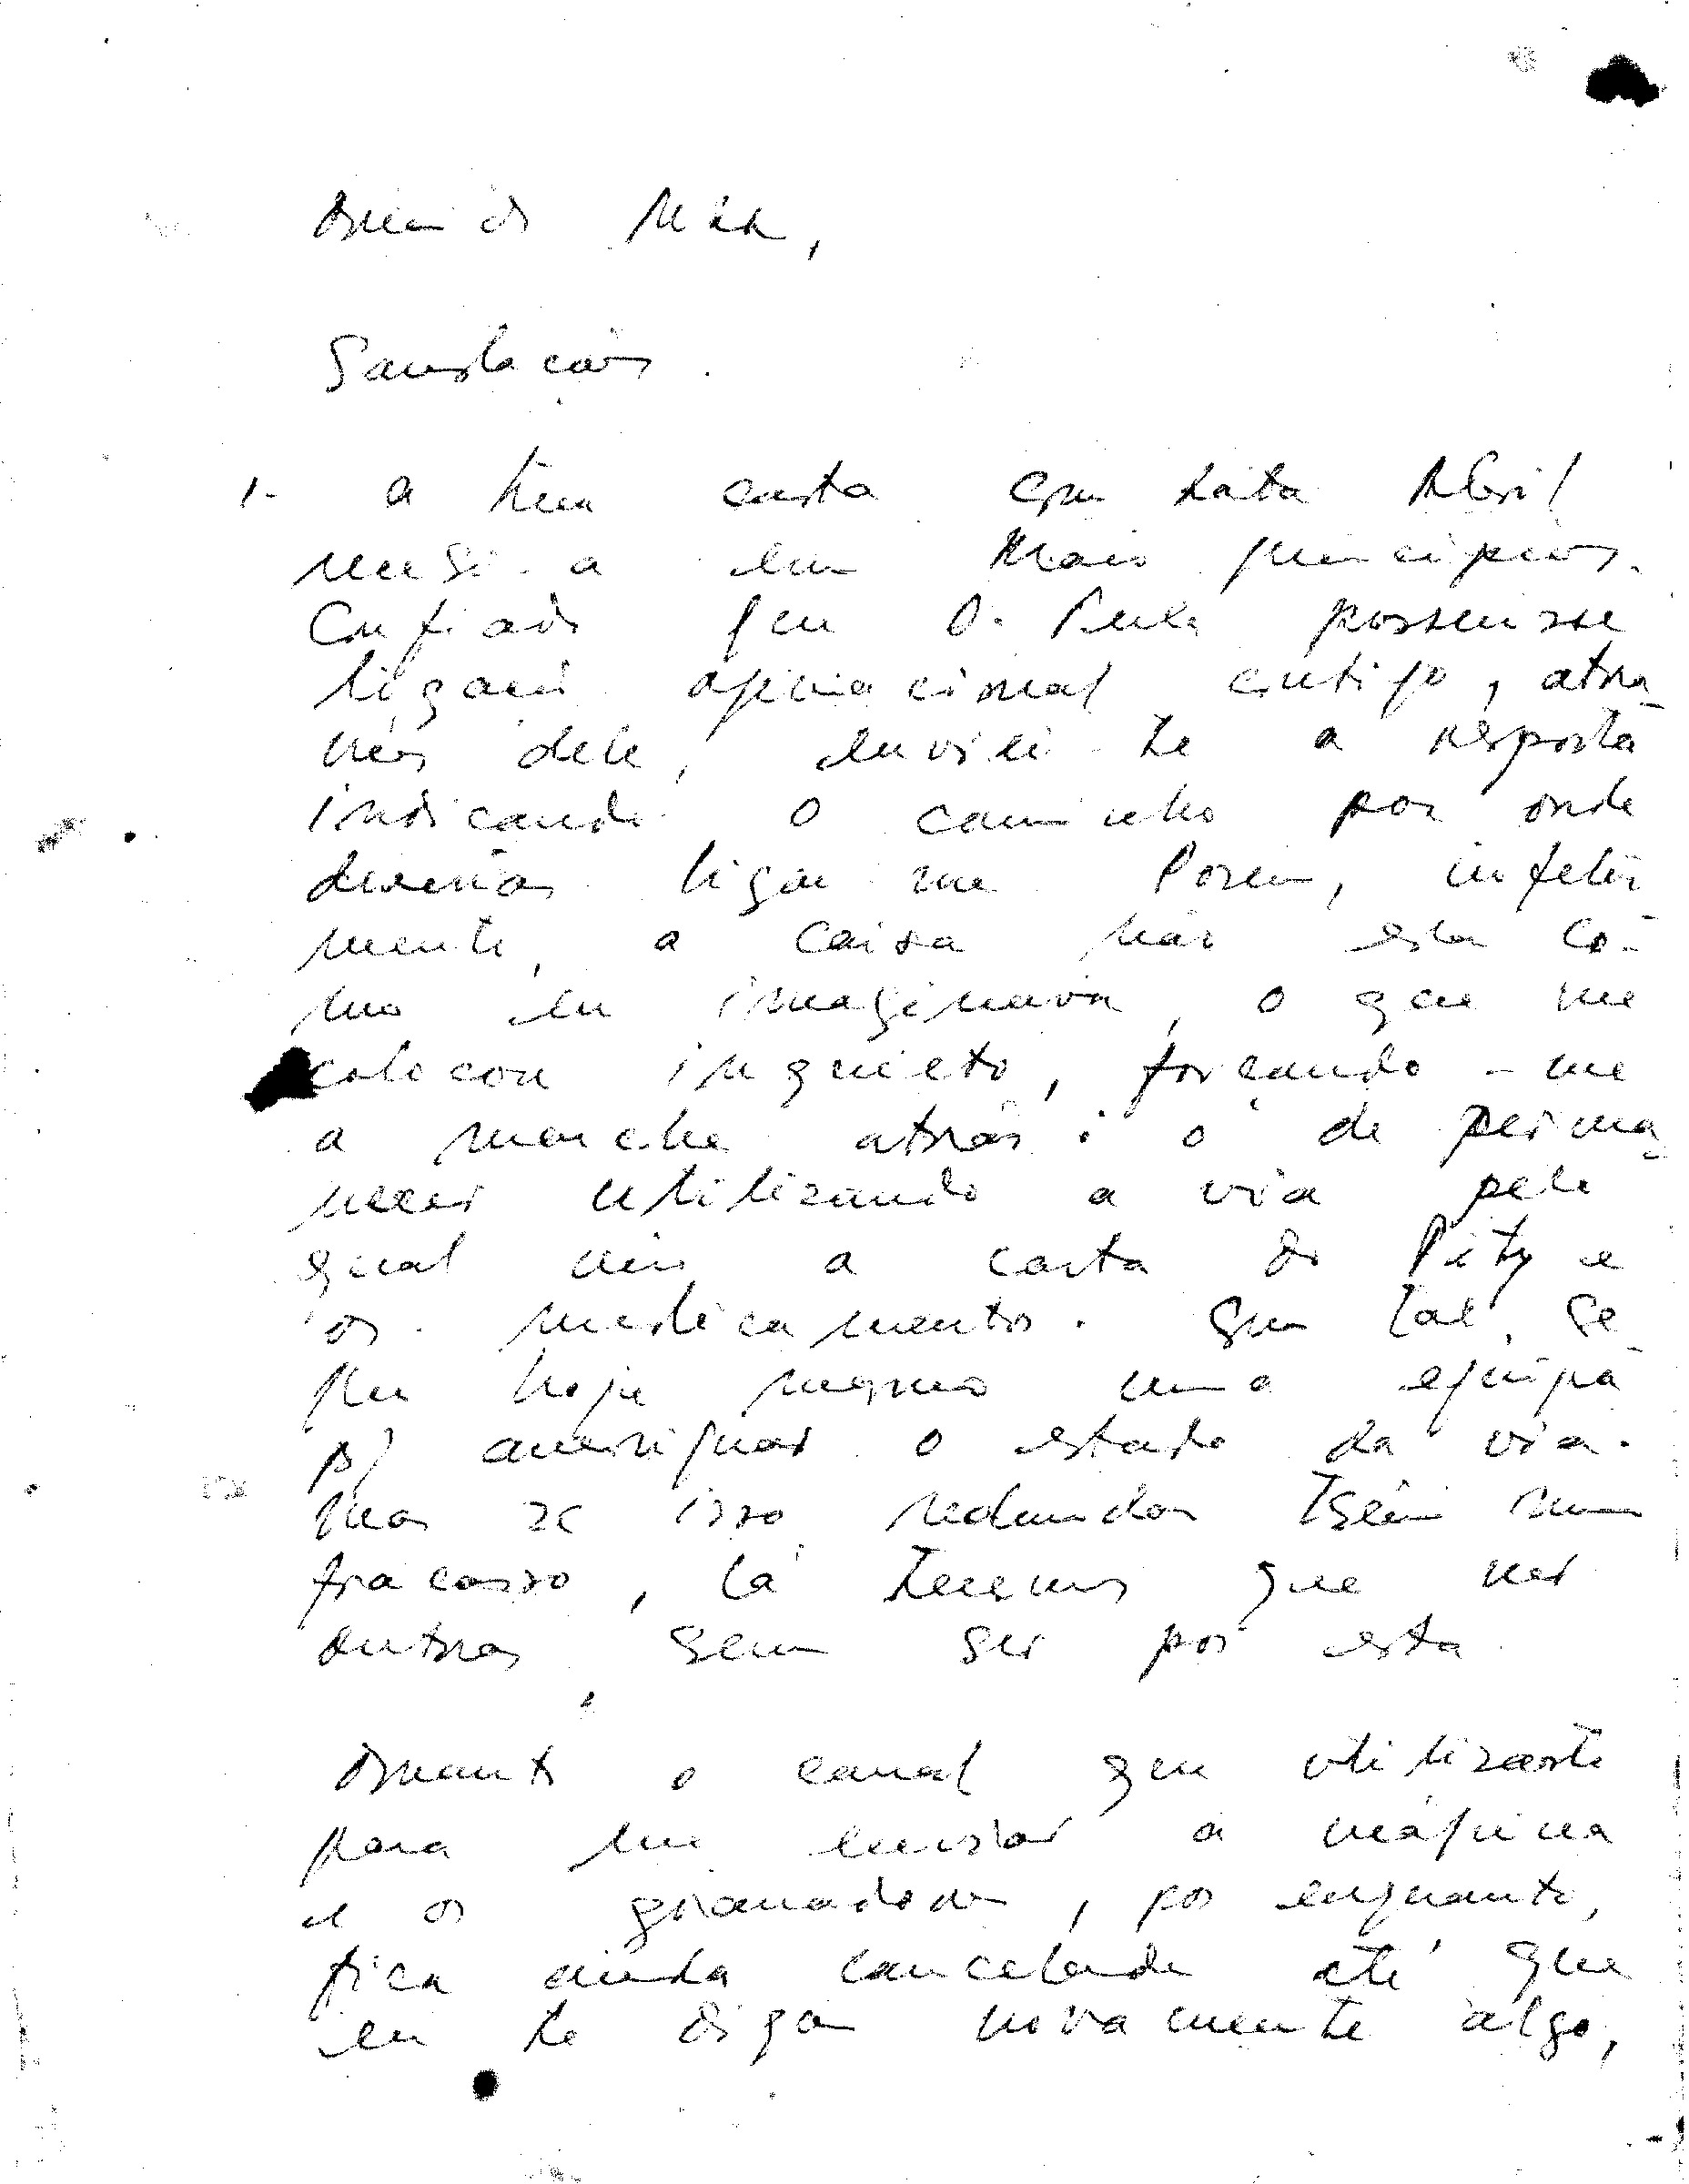 Saudações.
1- a tua carta com data Abril
recebi-a em Maio princípios.
Confiado que o Pula possuisse
ligação operacional contigo, atra
vés dele, enviei-te a resposta
indicando o caminho por onde
deverias ligar-me. Porém, infeliz
mente, a coisa não está co-
mo eu imaginava, o que me
colocou inquieto, forçando-me
a marcha atrás: o de perma
necer utilizando a via pela
qual veio a carta do Pity e
os medicamentos. Que tal, se
gue hoje mesmo uma equipa
p/ averiguar o estado da via.
Mas se isso redundar tbém num
fracasso, lá teremos que ver
outras, sem ser por esta.
Quanto o canal que utilizaste
para me enviar a máquina
e os gravadores, por enquanto,
fica ainda cancelando até que
eu te diga novamente algo,